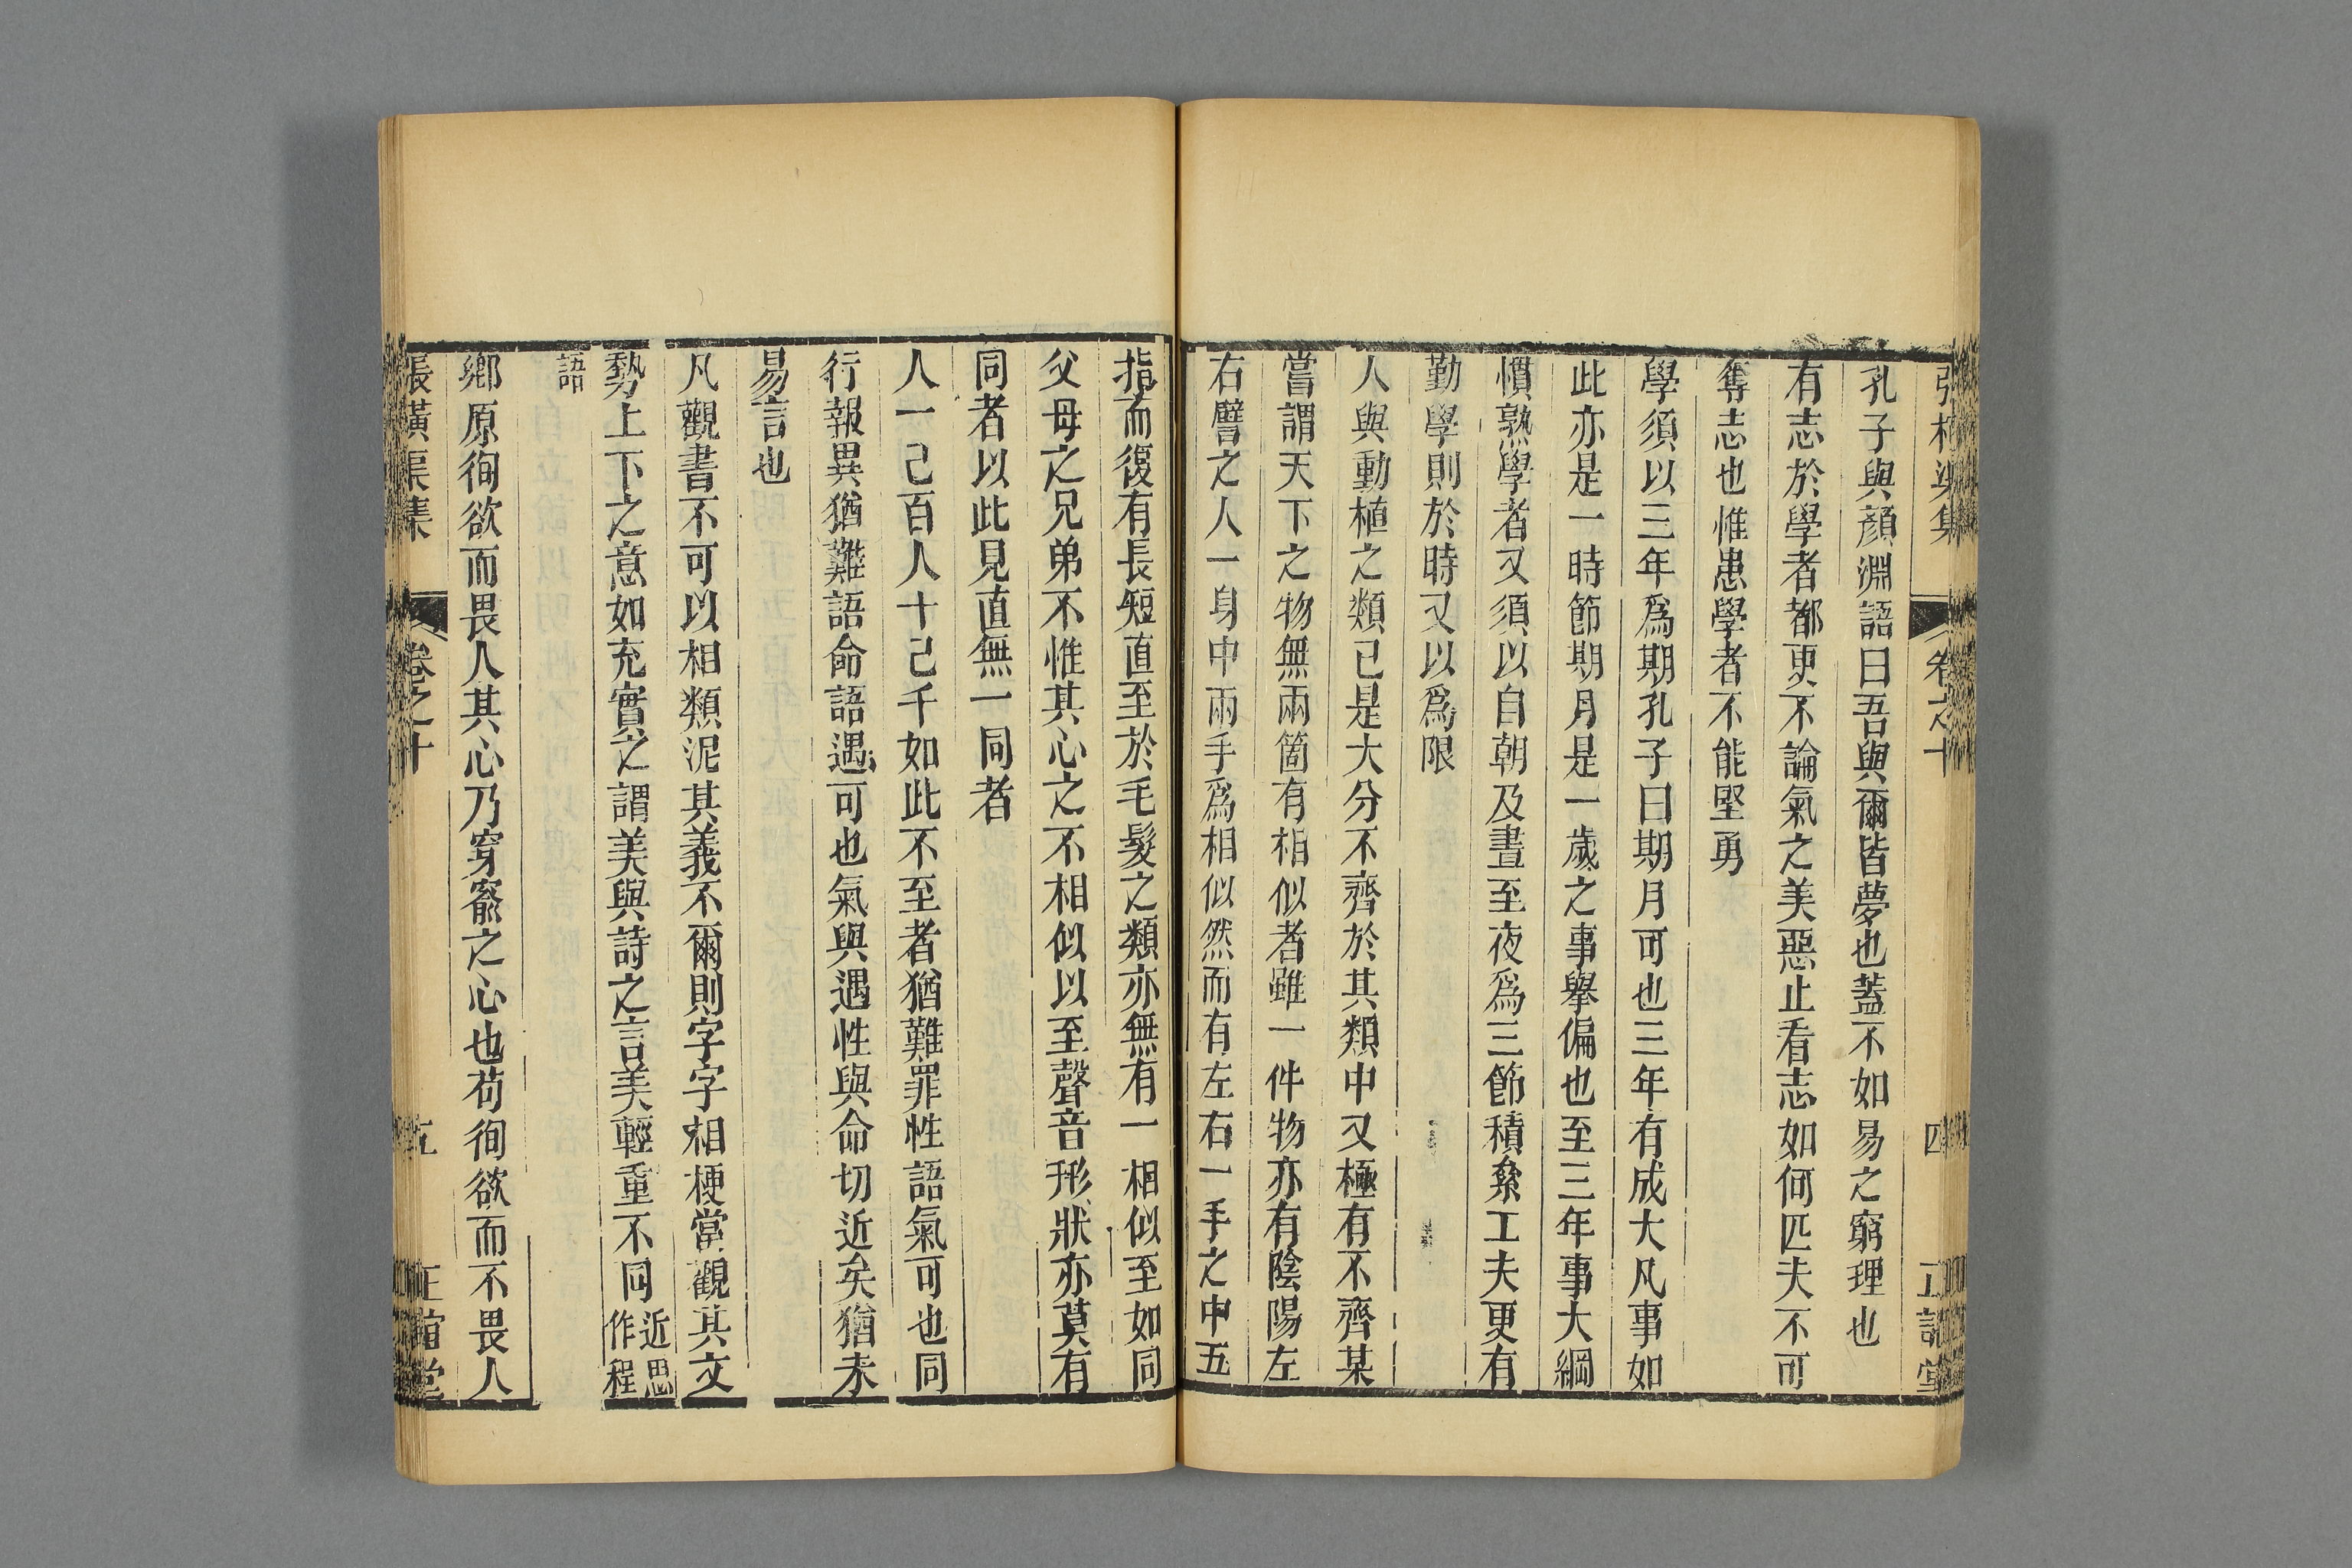 張橫渠集 卷之十 四 正誼堂
孔子與顏淵語曰吾與爾皆夢也蓋不如易之窮理也
有志於學者都更不論氣之美惡止看志如何匹夫不可
奪志也惟患學者不能堅勇
學須以三年爲期孔子曰期月可也三年有成大凡事如
此亦是一時節期月是一歲之事舉偏也至三年事大綱
慣熟學者又須以自朝及晝至夜爲三節積絫工夫更有
勤學則於時又以爲限
人與動植之類已是大分不齊於其類中又極有不齊某
嘗謂天下之物無兩箇有相似者雖一件物亦有陰陽左
右譬之人一身中兩手爲相似然而有左右一手之中五
指而復有長短直至於毛髮之類亦無有一相似至如同
父母之兄弟不惟其心之不相似以至聲音形狀亦莫有
同者以此見直無一同者
人一己百人十己千如此不至者猶難罪性語氣可也同
行報異猶難語命語遇可也氣與遇性與命切近矣猶未
易言也
凡觀書不可以相類泥其義不爾則字字相梗當觀其文
勢上下之意如充實之謂美與詩之言美輕重不同近思作程
語
鄉原徇欲而畏人其心乃穿窬之心也苟徇欲而不畏人
張橫渠集 卷之十 五 正誼堂